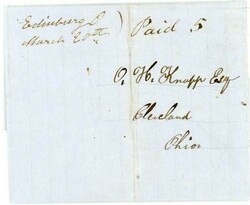 Edinburg O.
March 20th
Paid 5
O. H. Knapp Esq
Cleveland
Ohio